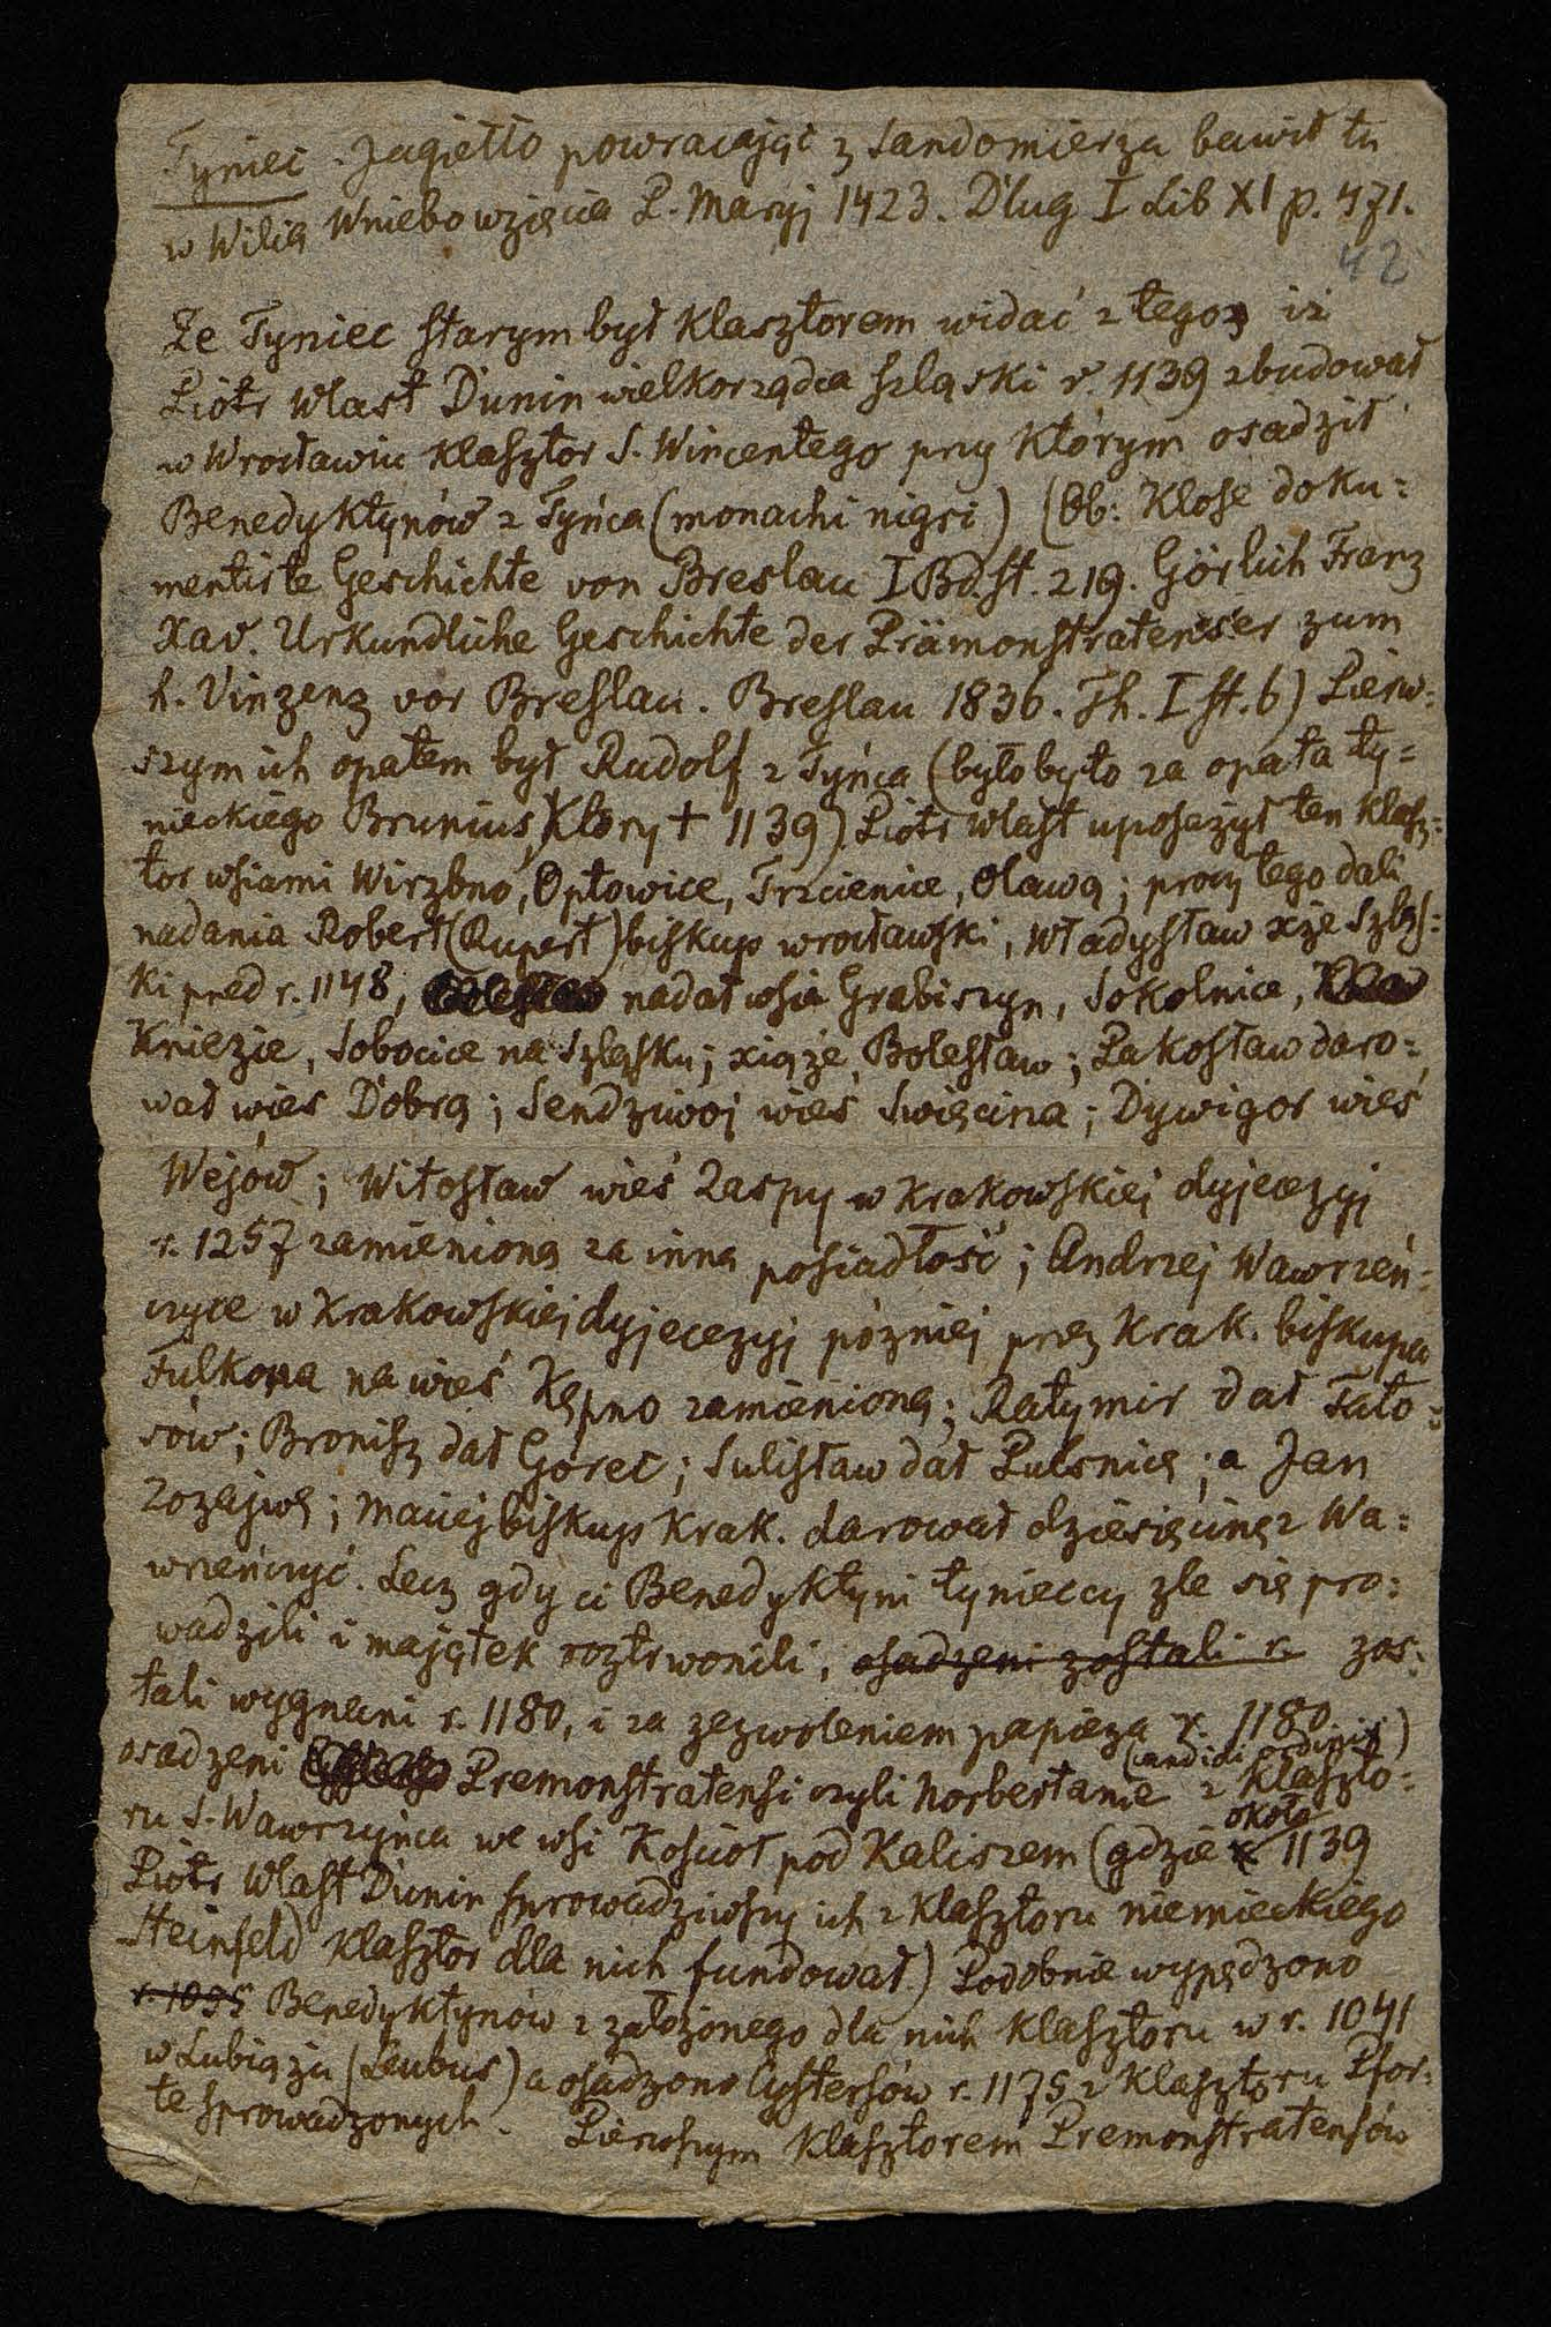 Tyniec. Jagiełło powracając z Sandomierza bawił tu
w Wilią Wniebowzięcia P. Maryj 1423. Dług I Lib XI p. 471.
42
Że Tyniec starym był klasztorem widać z tego iż
Piotr Włast Dunin wielkorządca szląski r. 1139 zbudował
w Wrocławiu klasztor S. Wincentego przy którym osadził
Benedyktynów z Tyńca (monachi nigri) (Ob: Klose doku=
mentirte Geschichte von Breslau I Bd. st. 219. Görlich Franz
Xav. Urkundliche Geschichte der Prämonstratenser zum
h. Vinzenz vor Breslau. Breslau 1836. Th. I st. 6) Pierw=
szym ich opatem był Rudolf z Tyńca (byłoby to za opata ty=
nieckiego Brunius, który + 1139) Piotr Włast uposażył ten klasz=
tor wsiami Wirzbno, Opłowice, Trzcienice, Oławą; prócz tego dali
nadania Robert (Rupert) biskup wrocławski, Władysław xże Szląs=
ki przed r. 1148, nadał wsie Grabiszyn, Sokolnice,
Kniezie, Sobocice na Szląsku; xiąże Bolesław; Pakosław daro=
wał wieś Dobrą; Sendziwoj wieś Swięcina; Dywigor wieś
Wejów; Witosław wieś Zaspy w Krakowskiej dyjecezyj
r. 1257 zamienioną za inną posiadłość; Andrzej Wawrzeń=
czyce w Krakowskiej dyjecezyj pózniej przez Krak. biskupa
Fulkona na wieś Kępno zamienioną; Ratymir dał Tato=
rów; Bronisz dał Górec; Sulisław dał Pulsnicę; a Jan
Zozajwę; Maciej biskup Krak. darował dziesięcinę z Wa=
wrzeńczyć. Lecz gdy ci Benedyktyni tynieccy zle się pro=
wadzili i majątek roztrwonili, osadzeni zostali r. zos=
tali wygnani r. 1180, i za zezwoleniem papieża r. 1180
osadzeni Premonstratensi czyli Norbertanie (candidi ordinis) z klaszto=
ru S. Wawrzyńca we wsi Kościoł pod Kaliszem (gdzie około 1139
Piotr Włast Dunin sprowadziwszy ich z klasztoru niemieckiego
Steinfeld klasztor dla nich fundował.) Podobnie wypędzono
r. 1095 Benedyktynów z założonego dla nich klasztoru w r. 1041
w Lubiążu (Leubus) a osadzono Cystersów r. 1175 z klasztoru Pfor=
te sprowadzonych. Pierwszym klasztorem Premonstratensów